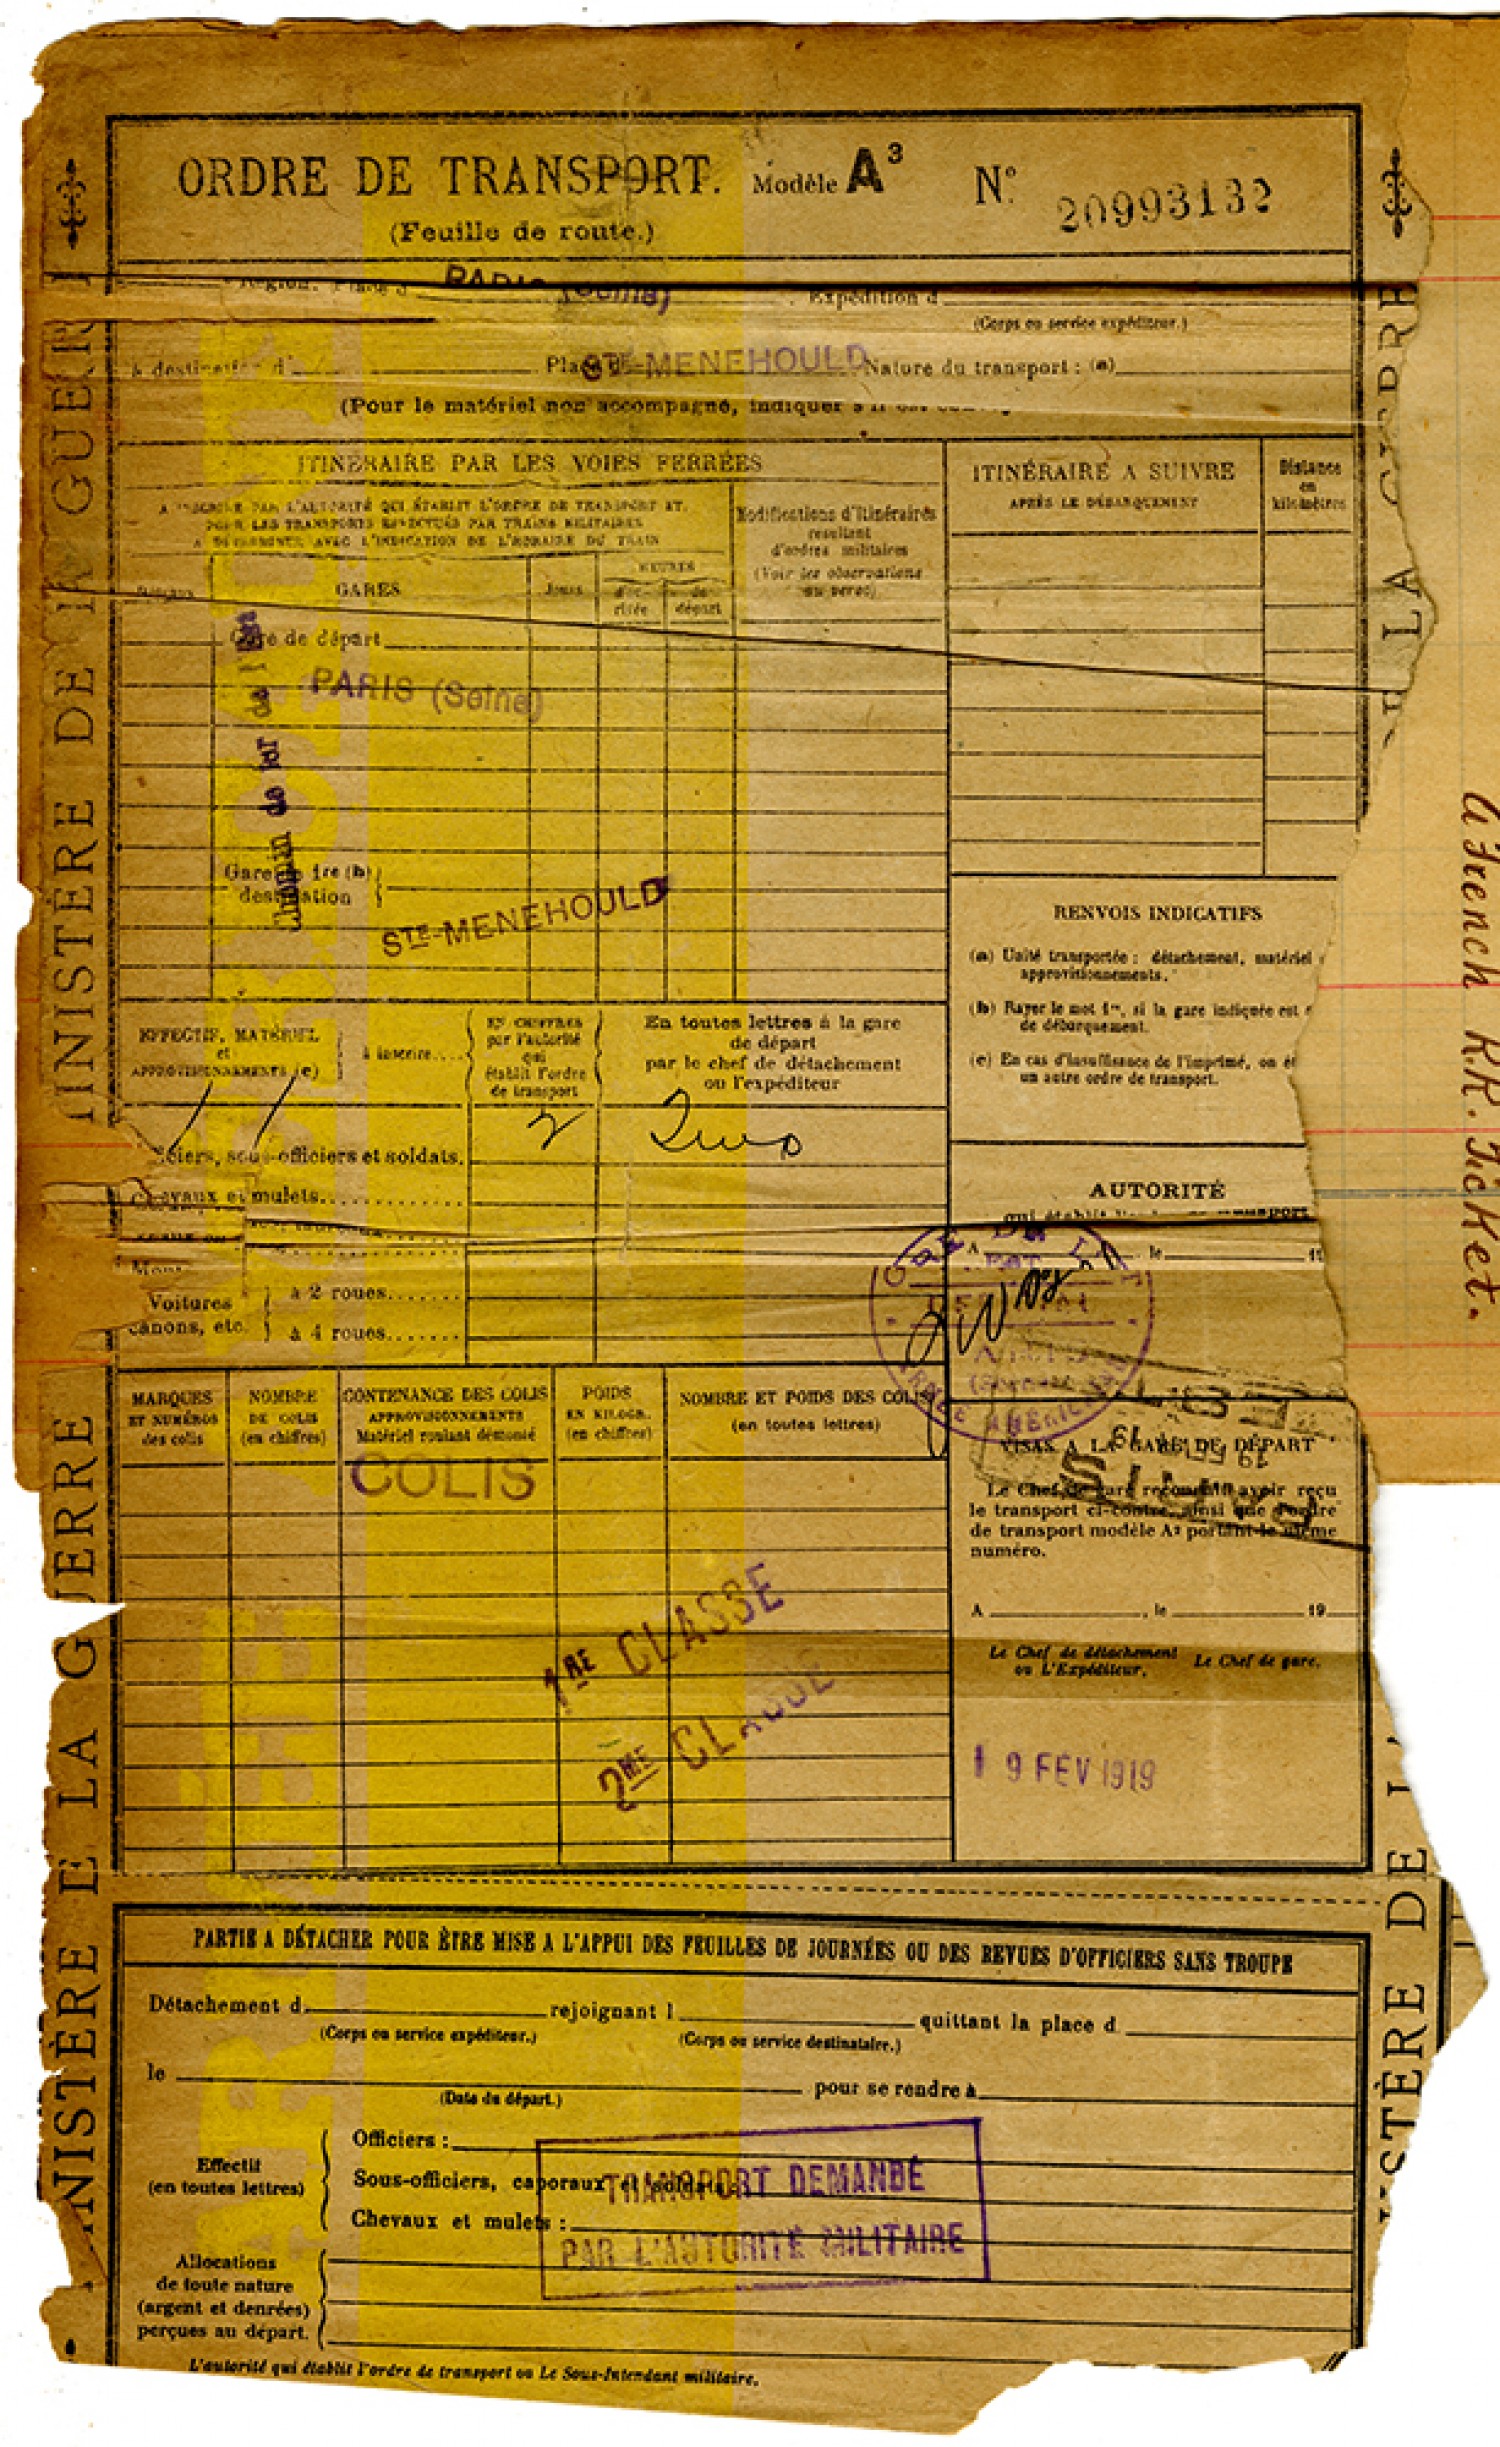 ORDRE DE TRANSPORT. Modèle A³ N° 20993132
(Feuille de route.)
Région. Place d PARIS (Seine) Expédition d
(Corps ou service expéditeur.)
à destination d Place de STE-MENEHOULD Nature du transport : (a)
(Pour le matériel non accompagné, indiquer s'il est
ITINÉRAIRE PAR LES VOIES FERRÉES
A INSCRIRE PAR L'AUTORITÉ QUI ÉTABLIT L'ORDRE DE TRANSPORT ET,
POUR LES TRANSPORTS EFFECTUÉS PAR TRAINS MILITAIRES
AVEC L'INDICATION DE L'HORAIRE DU TRAIN
Modifications d'Itinéraires
resultant
d'ordres militaires
(Voir les observations
au verso)
ITINÉRAIRE A SUIVRE
APRÈS LE DÉBARQUEMENT
Distance
en
kilomètres
GARES
Jours
HEURES
d'ar-
rivée
de
départ
Gare de départ
PARIS (Seine)
Chemin de fer de l'Est
Gare de 1re (b)
destination
STE-MENEHOULD
RENVOIS INDICATIFS
(a) Unité transportée : détachement, matériel
approvisionnements.
(b) Rayer le mot 1re, si la gare indiquée est
de débarquement.
(c) En cas d'insuffisance de l'imprimé, on
un autre ordre de transport.
EFFECTIF, MATÉRIEL
et
APPROVISIONNEMENTS (c)
à inscrire....
EN CHIFFRES
par l'autorité
qui
établit l'ordre
de transport
En toutes lettres à la gare
de départ
par le chef de détachement
ou l'expéditeur
ciers, sous-officiers et soldats. 2
Chevaux et mulets
Voitures
canons, etc.
à 2 roues
à 4 roues
AUTORITÉ
qui établit
A le
MARQUES
ET NUMÉROS
des colis
NOMBRE
DE COLIS
(en chiffres)
CONTENANCE DES COLIS
APPROVISIONNEMENTS
Matériel roulant démonté
POIDS
EN KILOGR.
(en chiffres)
NOMBRE ET POIDS DES COLIS
(en toutes lettres)
COLIS
1RE CLASSE
2ME CLASSE
PARIS
19 FEV 19
VISAS A LA GARE DE DÉPART
Le Chef de gare reconnaît avoir reçu
le transport ci-contre, ainsi que l'ordre
de transport modèle A² portant le même
numéro.
A , le 19
Le Chef de détachement
ou L'Expéditeur,
Le Chef de gare,
19 FEV 1919
PARTIE A DÉTACHER POUR ÊTRE MISE A L'APPUI DES FEUILLES DE JOURNÉES OU DES REVUES D'OFFICIERS SANS TROUPE
Détachement d rejoignant l quittant la place d
(Corps ou service expéditeur.) (Corps ou service destinataire.)
le pour se rendre à
(Date du départ.)
Effectif
(en toutes lettres)
Officiers :
Sous-officiers, caporaux et soldats
Chevaux et mulets :
TRANSPORT DEMANDÉ
PAR L'AUTORITÉ MILITAIRE
Allocations
de toute nature
(argent et denrées)
perçues au départ.
L'autorité qui établit l'ordre de transport ou Le Sous-Intendant militaire,
MINISTÈRE DE LA GUERRE
MINISTÈRE DE LA GUERRE
A French R.R. Ticket.